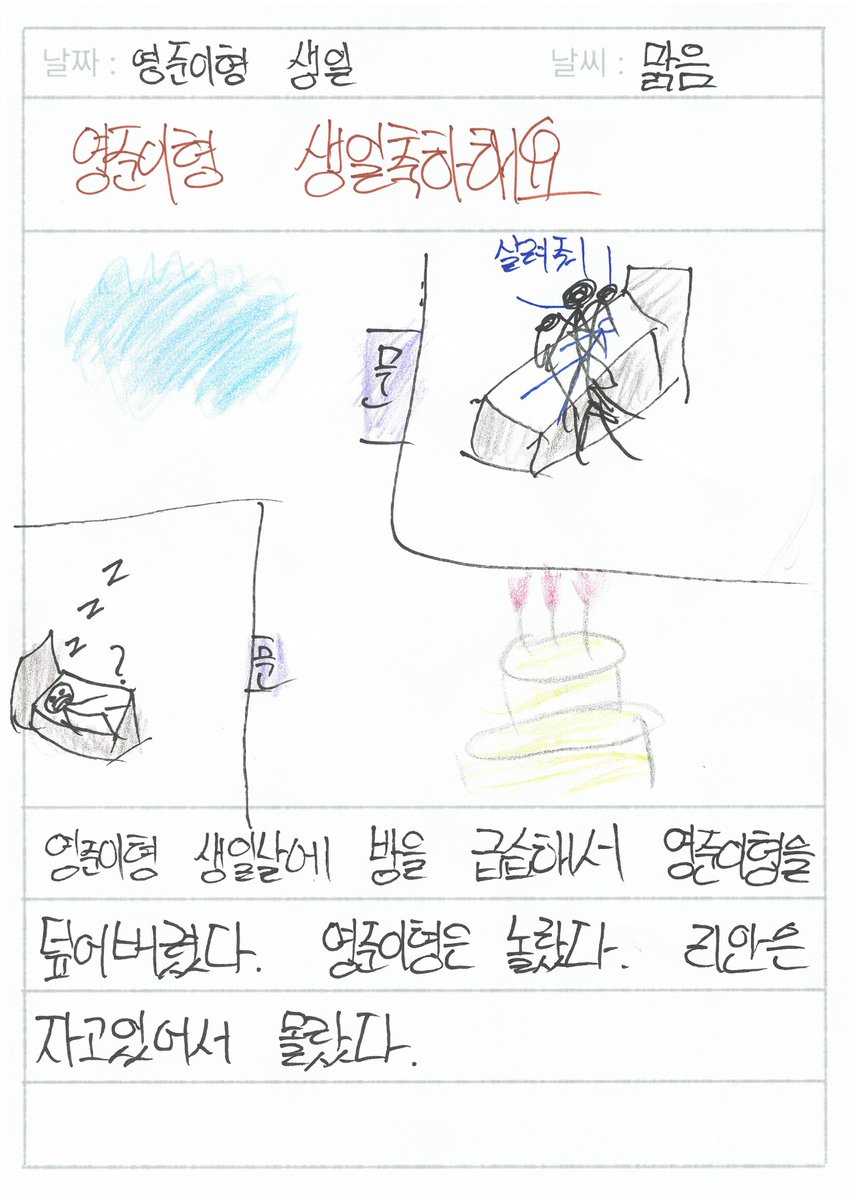 날짜 : 영준이형 생일 날씨 : 맑음
영준이형 생일축하해요
살려줘!
문
z
z
z
?
문
영준이형 생일날에 방을 급습해서 영준이형을
덮어버렸다. 영준이형은 놀랐다. 리안은
자고있어서 몰랐다.